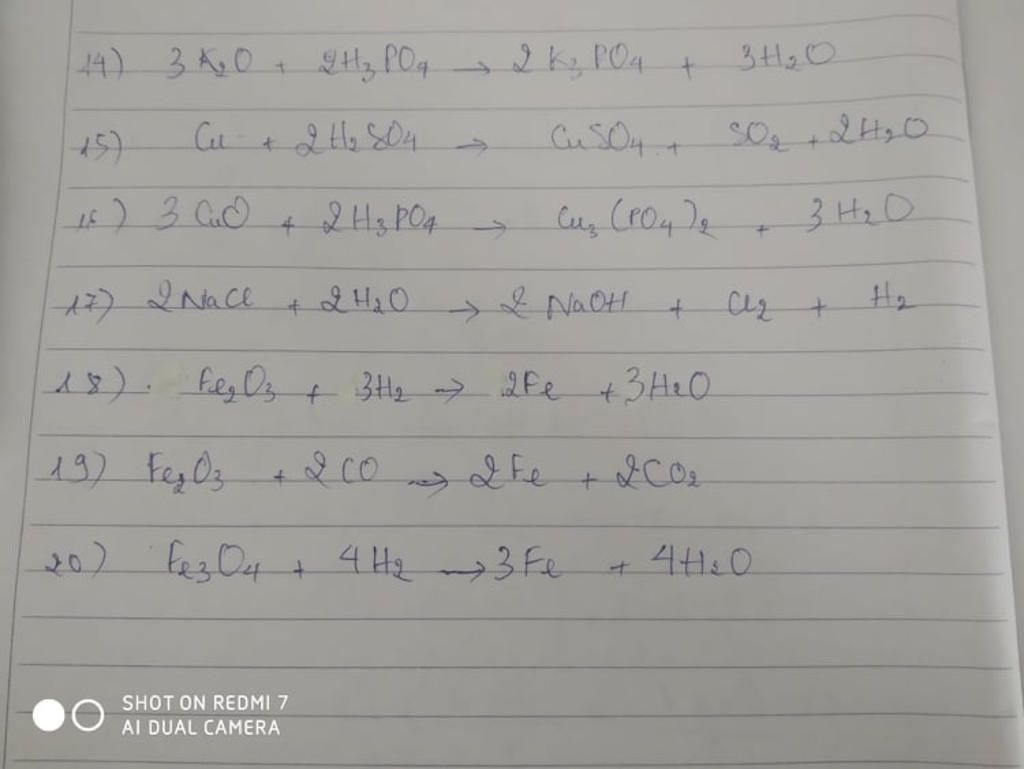 14) 3 K₂O + 2H₃PO₄ → 2 K₃PO₄ + 3H₂O
15) Cu + 2H₂SO₄ → CuSO₄ + SO₂ + 2H₂O
16) 3 CuO + 2H₃PO₄ → Cu₃(PO₄)₂ + 3H₂O
17) 2NaCl + 2H₂O → 2 NaOH + Cl₂ + H₂
18) Fe₂O₃ + 3H₂ → 2Fe + 3H₂O
19) Fe₂O₃ + 2CO → 2Fe + 2CO₂
20) Fe₃O₄ + 4H₂ → 3Fe + 4H₂O
SHOT ON REDMI 7
AI DUAL CAMERA